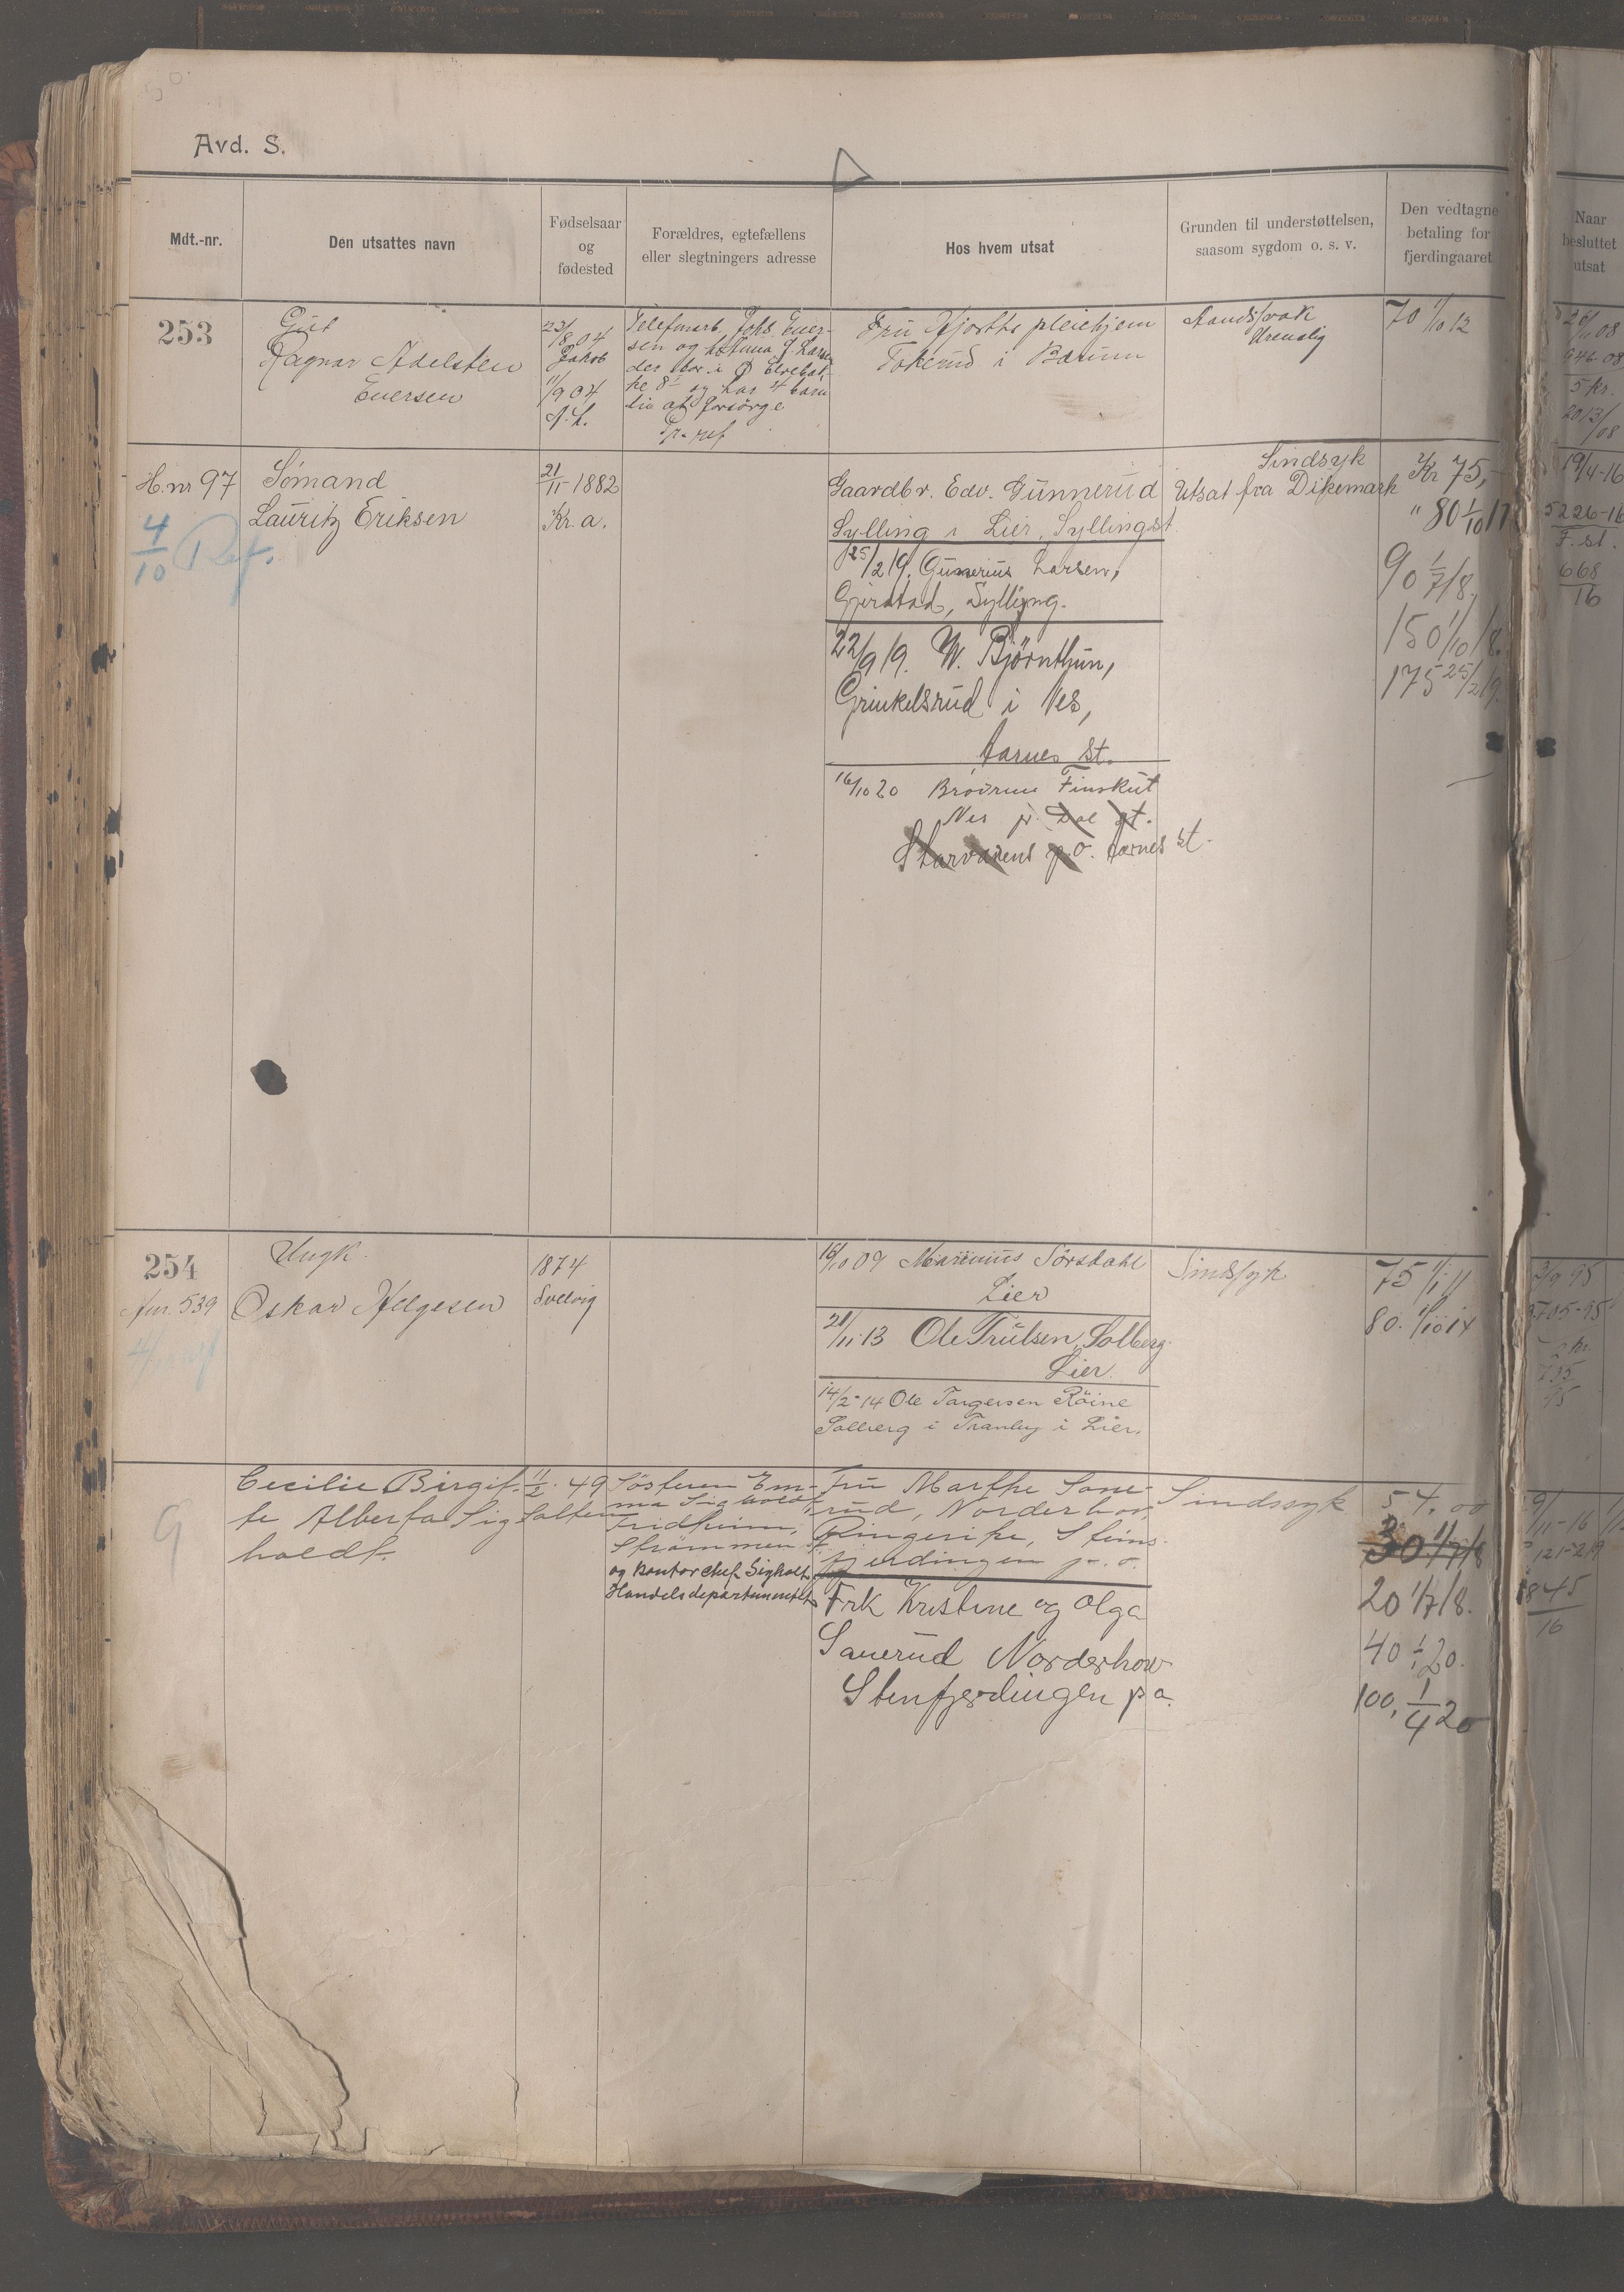 Avd. S.
Mdt.-nr.
Den utsattes navn
Fødselsaar
og
fødested
Forældres, egtefællens
eller slegtningers adresse
Hos hvem utsat
Grunden til understøttelsen,
saasom sygdom o. s. v.
Den vedtagne
betaling for
fjerdingaaret
Naar
besluttet
utsat
253
Gut
Ragnar Adelsten
Euersen
23/8 04
Jakob
11/9 04
Telefonarb. Johs. Euer-
sen og
ke 8 I og har 4 barn
til at forsørge
Fru Hjorths pleiehjem
Tokerud i Bærum
Aandssvak
Urenslig
70 1/10 12
946-08
5 kr.
2013/08
H.nr 97
4/10 Ref.
Sømand
Lauritz Eriksen
21/11-1882
Kr.a.
Gaardbr. Edv. Gunnerud
Sylling i Lier, Syllingst.
25/2 19. Gunnerius Larsen,
Gjerstad, Sylling.
22/9 19. W. Bjørnthun,
Grinkelsrud i Nes,
Aarnes St.
16/10 20 Brovrue Finskut
Nes pr. Dal st.
Storvarens p.o. Aarnes st.
Sindsyk
Utsat fra Dikemark
Kr 75,-
" 80 1/10 17
90 1/7 18.
150 1/10 18.
175 25/2 19.
19/4-16
5226-16
F. st.
668
16
254
Anr. 539
Ungk.
Oskar Helgesen
1874
Svelvig
15/10 09 Marinius Sørsdahl
Lier
21/11 13 Ole Trulsen, Solberg
Lier.
14/2-14 Ole Torgersen Röine
Solberg i Tranby i Lier.
Sindssyk
75 1/1 11
80. 1/10 14
3/9 95
2705-95
2 kr.
735
95
G
Cecilie Birgit-
te Alberta Sig
holdt.
11/2. 49
Salten
Søsteren Em-
ma Sigholdt,
Fridheim,
Strømmen st.
og kontorchef Sigholt
Handelsdepartementet
Fru Marthe Sone-
rud, Norderhov,
Ringerike, Steins-
fjerdingen p. o.
Frk Kristine og Olga
Sauerud Norderhov
Stenfjerdingen p.o.
Sindssyk
54,00
30 1/7 18
20 1/7 18.
40 1/1 20.
100, 1/4 20
9/11-16
1845
16